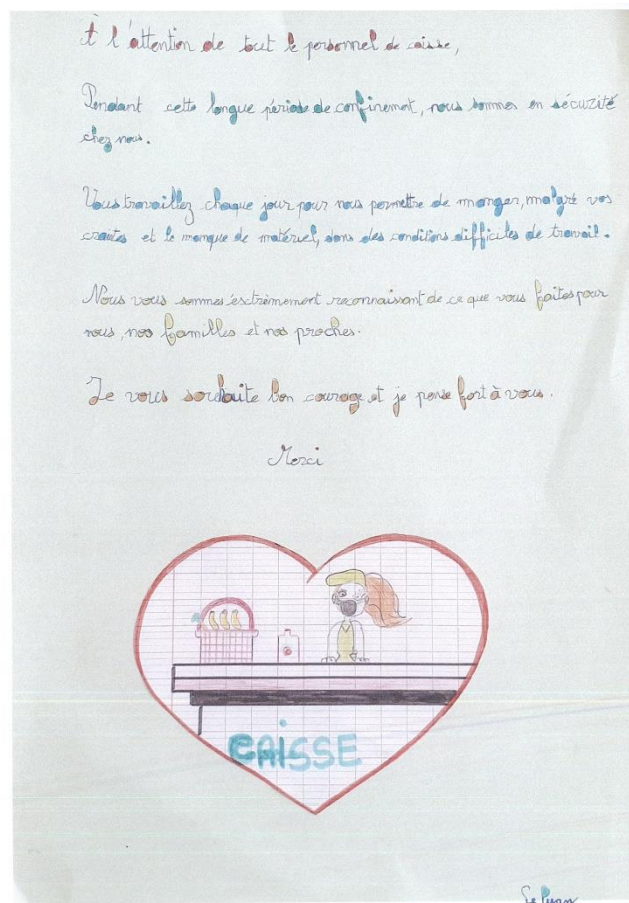 À l'attention de tout le personnel de caisse,
Pendant cette longue période de confinement, nous sommes en sécurité
chez nous.
Vous travaillez chaque jour pour nous permettre de manger, malgré vos
craintes et le manque de matériel, dans des conditions difficiles de travail.
Nous vous sommes extrèmement reconnaissant de ce que vous faites pour
nous, nos familles et nos proches.
Je vous souhaite bon courage et je pense fort à vous.
Merci
CAiSSE